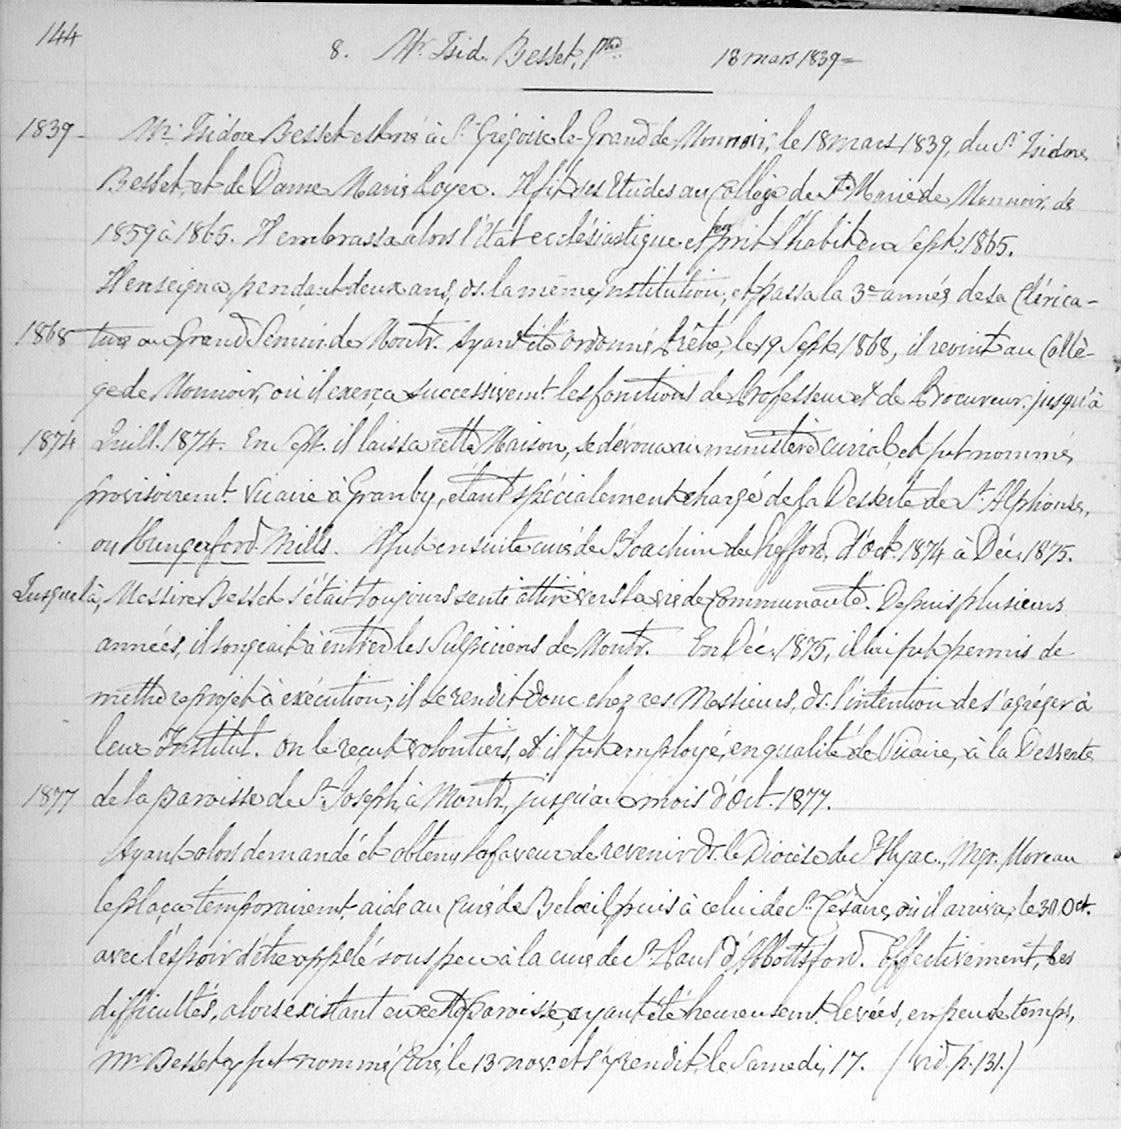 144
8. Mr. Isid. Besset, Ptre. 18 mars 1839 =
1839 - Mr. Isidore Besset est né à St. Grégoire-le-Grand de Monnoir, le 18 mars 1839, du Sr. Isidore
Besset et de Dame Marie Loyer. Il fit ses études au Collège de Ste. Marie de Monnoir, de
1859 à 1865. Il embrassa alors l'état ecclésiastique et prit l'habit en Sept. 1865.
Il enseigna, pendant deux ans, ds. la même institution, et passa la 3e année de sa Clérica-
1868 ture au Grand Sémin. de Montr. Ayant été ordonné Prêtre, le 19 Sept. 1868, il revint au Collè-
ge de Monnoir, où il exerça successivemt. les fonctions de Professeur et de Procureur, jusqu'à
1874 Juill. 1874. En Sept. il laissa cette Maison, se dévoua au ministère curial et fut nommé,
provisoiremt. Vicaire à Granby, étant spécialement chargé de la Desserte de St. Alphonse,
ou Hungerford Mills. Il fut ensuite curé de St. Joachim de Shefford, d'Oct. 1874 à Déc. 1875.
Jusque là, Messire Besset s'était toujours senti attiré vers la vie de communauté. Depuis plusieurs
années, il songeait à entrer les Sulpiciens de Montr. En Déc. 1875, il lui fut permis de
mettre ce projet à exécution; il se rendit donc chez ces Messieurs, ds. l'intention de s'agréger à
leur Institut. On le reçut volontiers, et il fut employé, en qualité de Vicaire, à la Desserte
1877 de la paroisse de St. Joseph, à Montr., jusqu'au mois d'Oct. 1877.
Ayant alors demandé et obtenu la faveur de revenir ds. le Diocèse de St. Hyac., Mgr. Moreau
le plaça temporairemt. aide au Curé de Beloeil puis à celui de St. Césaire, où il arriva, le 30 Oct.
avec l'espoir d'être appelé sous peu à la cure de St. Paul d'Abbottsford. Effectivement, les
difficultés, alors existant en cette Paroisse, ayant été heureusemt. levées, en peu de temps,
Mr. Besset y fut nommé Curé, le 13 nov. et s'y rendit, le Samedi, 17. (vid. p. 131.)